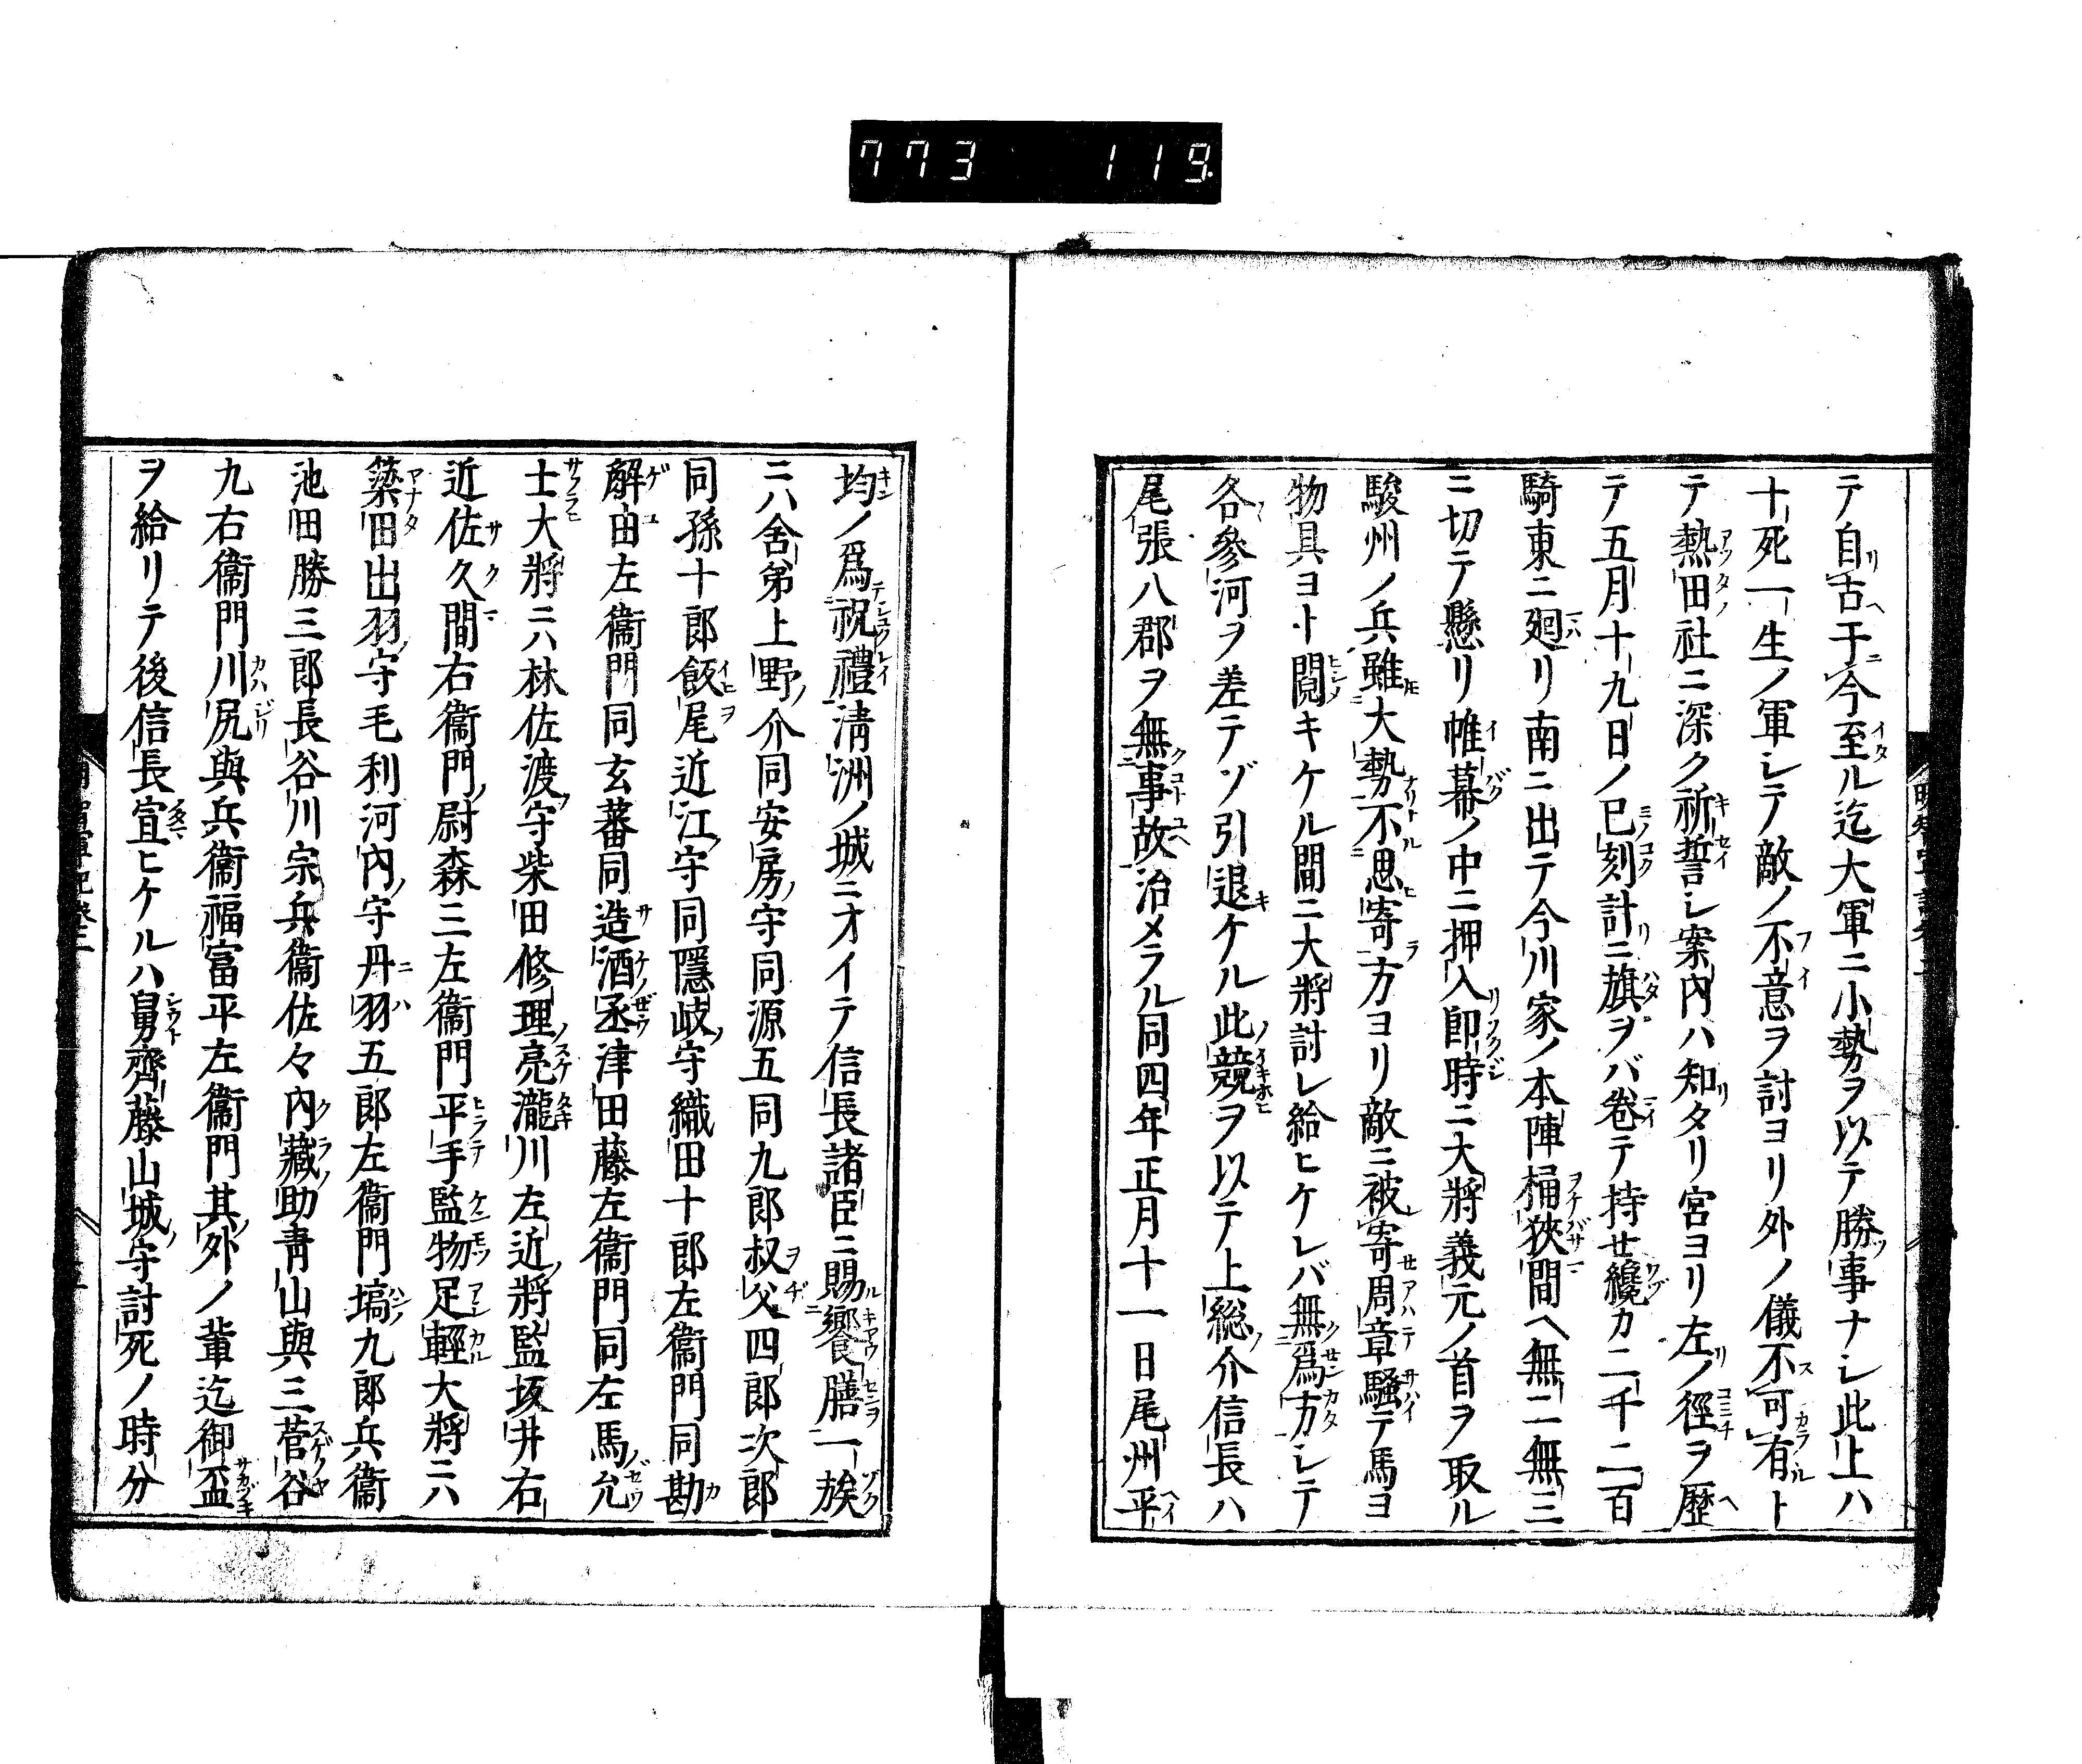 773 119.
テ自古于今至ル迄大軍ニ小勢ヲ以テ勝事ナシ此上ハ
十死一生ノ軍シテ敵ノ不意ヲ討ヨリ外ノ儀不可有ト
テ熱田社ニ深ク祈誓シ案内ハ知タリ宮ヨリ左ノ徑ヲ歷
テ五月十九日ノ巳刻計ニ旗ヲバ卷テ持セ纔カ二千二百
騎東ニ廻リ南ニ出テ今川家ノ本陣桶狹間ヘ無二無三
ニ切テ懸リ帷幕ノ中ニ押入即時ニ大將義元ノ首ヲ取ル
駿州ノ兵雖大勢不思寄方ヨリ敵ニ被寄周章騷テ馬ヨ
物具ヨト鬩キケル間ニ大將討レ給ヒケレバ無爲方シテ
各參河ヲ差テゾ引退ケル此競ヲ以テ上総介信長ハ
尾張八郡ヲ無事故治メラル同四年正月十一日尾州平
均ノ爲祝禮淸洲ノ城ニオイテ信長諸臣ニ賜饗膳一族
ニハ舍弟上野介同安房守同源五同九郎叔父四郎次郎
同孫十郎飯尾近江守同隱岐守織田十郎左衞門同勘
解由左衞門同玄蕃同造酒丞津田藤左衞門同左馬允
士大將ニハ林佐渡守柴田修理亮瀧川左近將監坂井右
近佐久間右衞門尉森三左衞門平手監物足輕大將ニハ
簗田出羽守毛利河內守丹羽五郎左衞門塙九郎兵衞
池田勝三郎長谷川宗兵衞佐々內藏助靑山與三菅谷
九右衞門川尻與兵衞福富平左衞門其外ノ輩迄御盃
ヲ給リテ後信長宣ヒケルハ舅齊藤山城守討死ノ時分